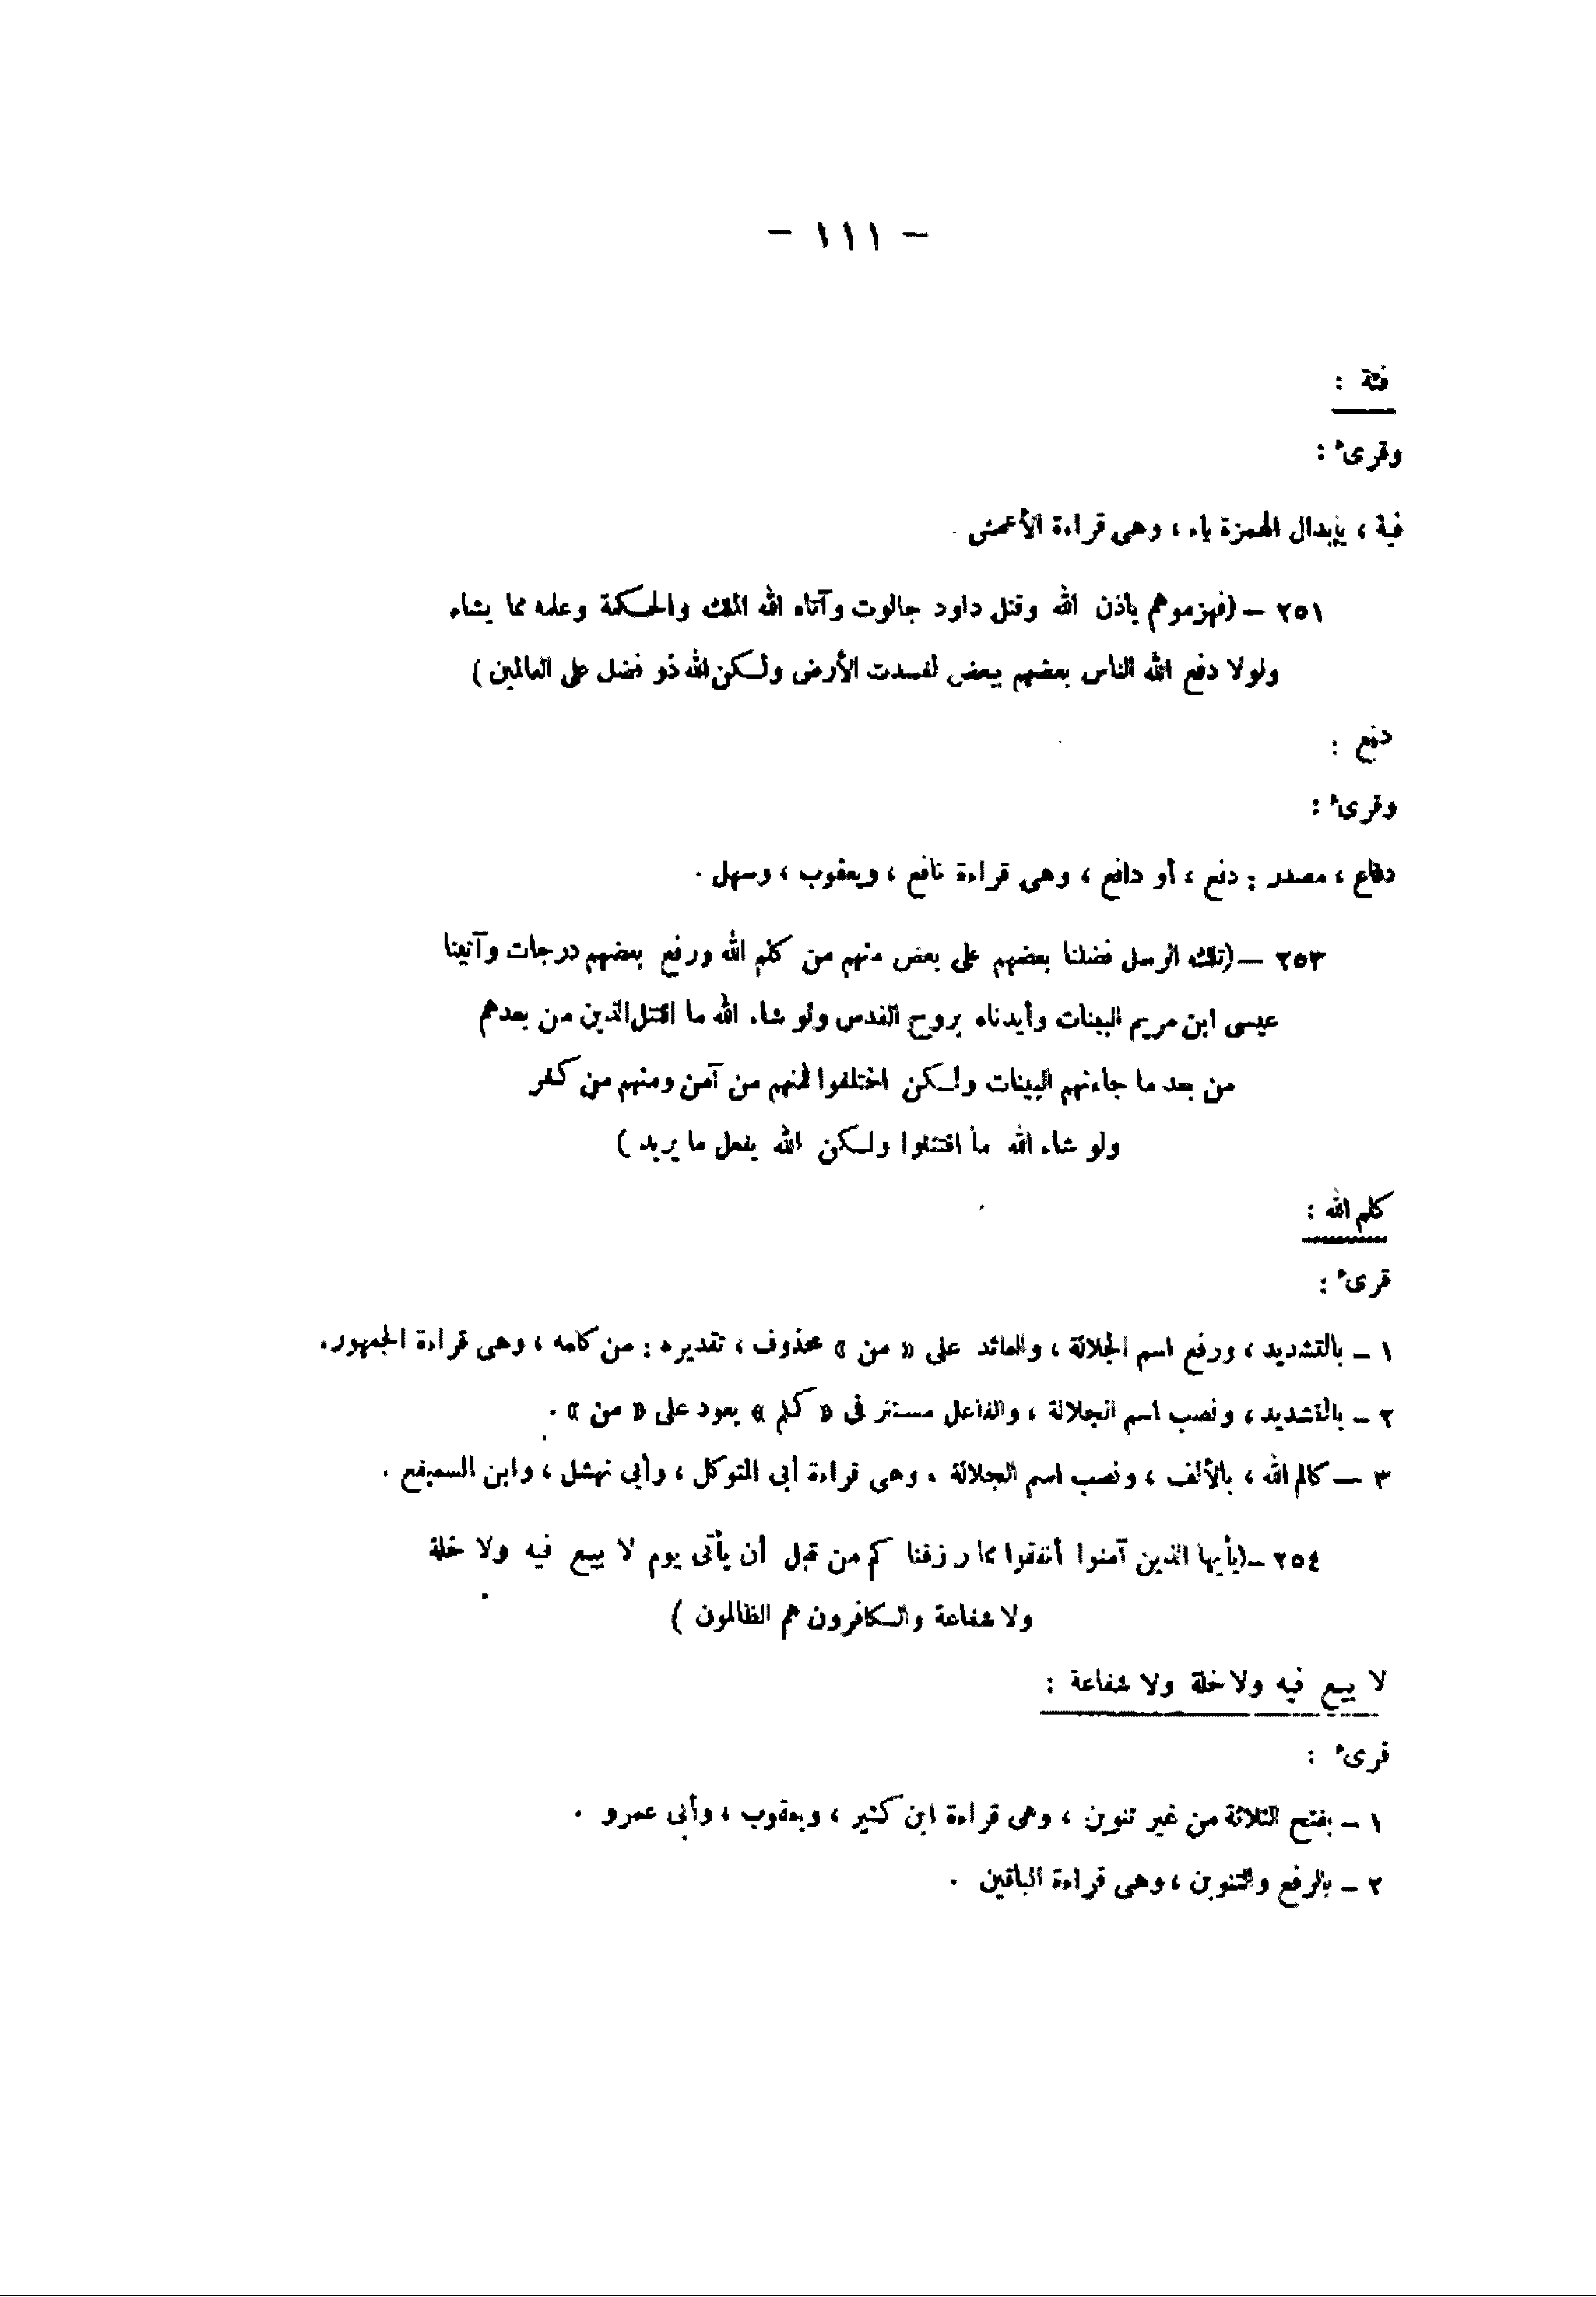 — ١١١ —
فئة :
وقرىء :
فية ، بإبدال الهمزة ياء ، وهى قراءة الأعمش .
٢٥١ — (فهزموهم بإذن الله وقتل داود جالوت وآتاه الله الملك والحكمة وعلمه مما يشاء
ولولا دفع الله الناس بعضهم ببعض لفسدت الأرض ولكن الله ذو فضل على العالمين )
دفع :
وقرىء :
دفاع ، مصدر : دفع ، أو دافع ، وهى قراءة نافع ، ويعقوب ، وسهل .
٢٥٣ — (تلك الرسل فضلنا بعضهم على بعض منهم من كلم الله ورفع بعضهم درجات وآتينا
عيسى ابن مريم البينات وأيدناه بروح القدس ولو شاء الله ما اقتتل الذين من بعدهم
من بعد ما جاءتهم البينات ولكن اختلفوا فمنهم من آمن ومنهم من كفر
ولو شاء الله ما اقتتلوا ولكن الله يفعل ما يريد )
كلم الله :
قرىء :
١ — بالتشديد ، ورفع اسم الجلالة ، والعائد على « من » محذوف ، تقديره : من كلمه ، وهى قراءة الجمهور.
٢ — بالتشديد ، ونصب اسم الجلالة ، والفاعل مستتر فى « كلم » يعود على « من » .
٣ — كالم الله ، بالألف ، ونصب اسم الجلالة . وهى قراءة أبى المتوكل ، وأبى نهشل ، وابن السميفع .
٢٥٤ — (يأيها الذين آمنوا أنفقوا مما رزقنا كم من قبل أن يأتى يوم لا بيع فيه ولا خلة
ولا شفاعة والكافرون هم الظالمون )
لا بيع فيه ولا خلة ولا شفاعة :
قرىء :
١ — بفتح الثلاثة من غير تنوين ، وهى قراءة ابن كثير ، ويعقوب ، وأبى عمرو .
٢ — بالرفع والتنوين ، وهى قراءة الباقين .